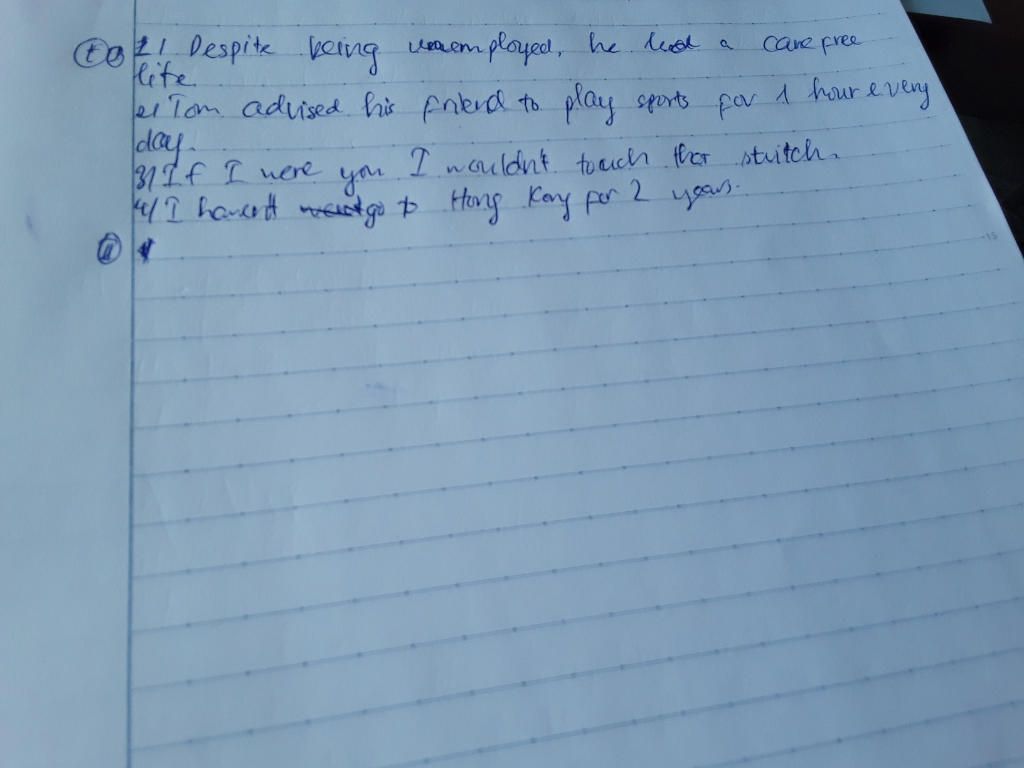 1/ Despite being unemployed, he lead a carefree
life
2/ Tom advised his friend to play sports for 1 hour every
day.
3/ If I were you I wouldn't touch that switch.
4/ I haven't go to Hong Kong for 2 years.